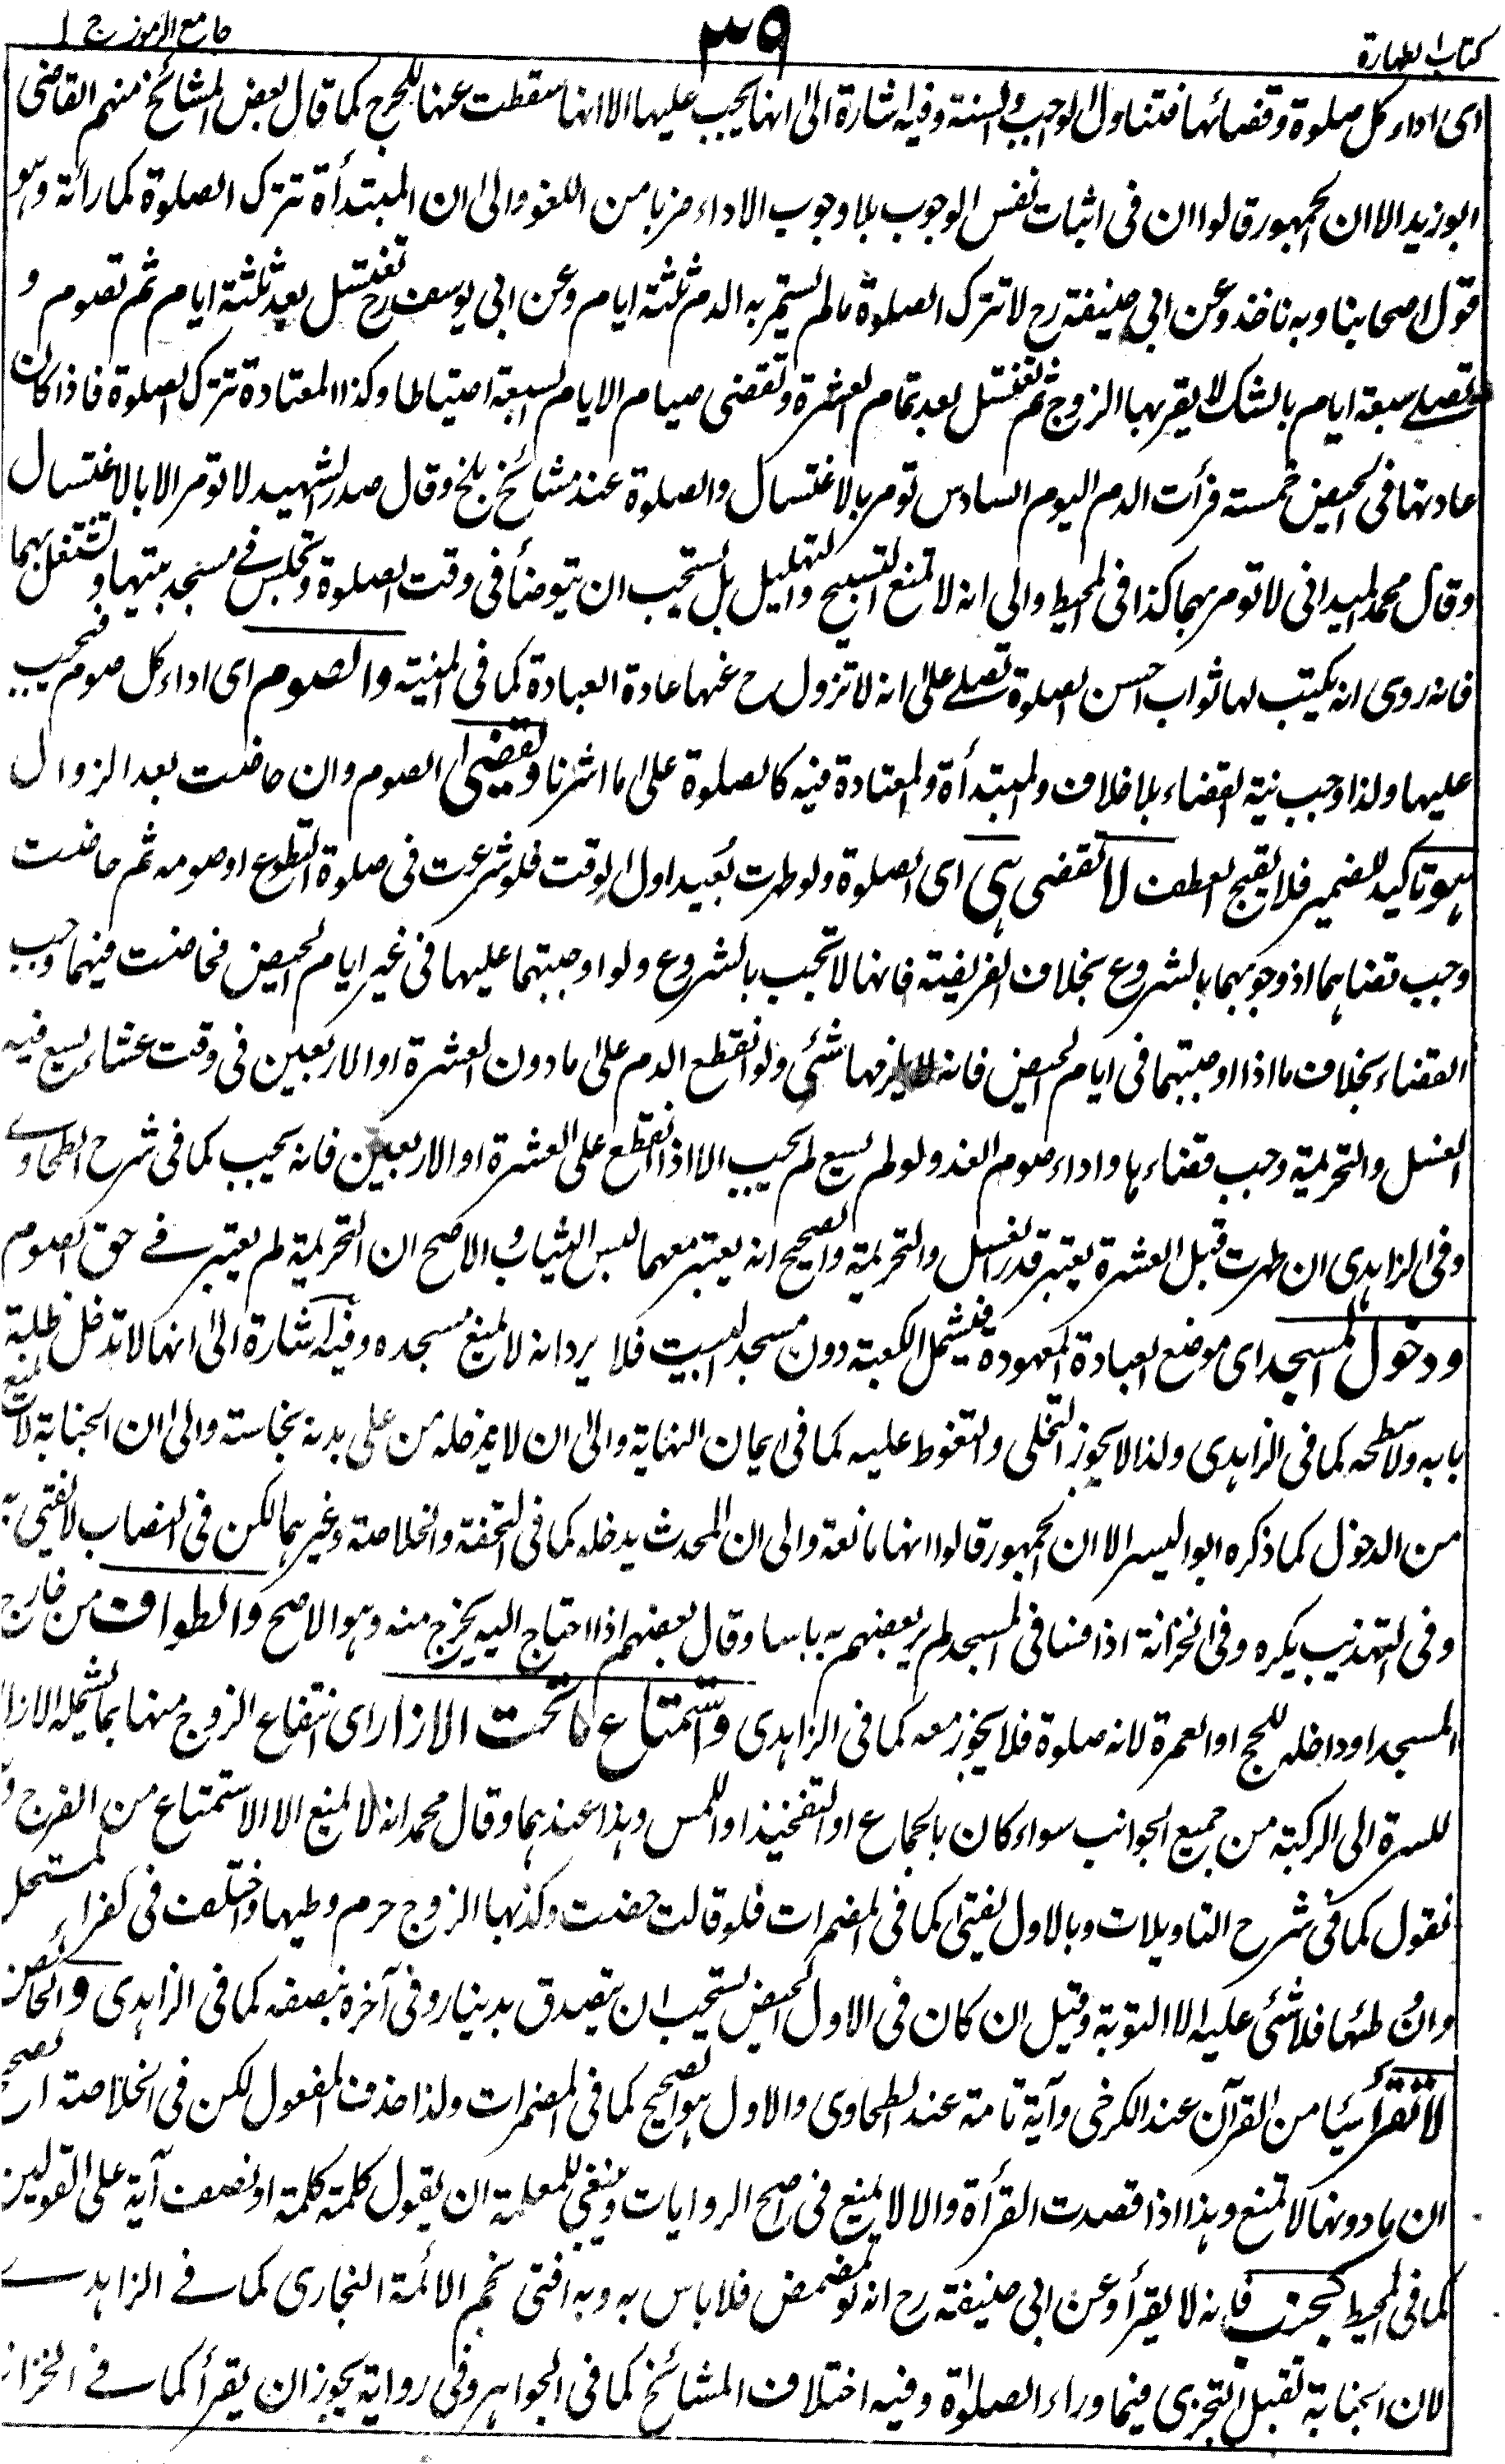 كتاب الطهارة ٣٩ جامع الرموز ج ١
اى اداء كل صلوة وقضائها فتناول الواجب والسنة وفيه اشارة الى انها يجب عليها الا انها سقطت عنها للحرج كما قال بعض المشائخ منهم القاضى
ابو زيد الا ان الجمهور قالوا ان فى اثبات نفس الوجوب بلا وجوب الاداء ضربا من اللغو والى ان المبتدأة تترك الصلوة كما رأته وهو
قول اصحابنا وبه ناخذ وعن ابى حنيفة رح لا تترك الصلوة ما لم يستمر به الدم ثلثة ايام وعن ابى يوسف رح تغتسل بعد ثلثة ايام ثم تصوم و
تصلے سبعة ايام بالشك لا يقربها الزوج ثم تغتسل بعد تمام العشرة وتقضى صيام الايام السبعة احتياطا وكذا المعتادة تترك الصلوة فاذا كان
عادتها فى الحيض خمسة فرأت الدم اليوم السادس تومر بالاغتسال والصلوة عند مشائخ بلخ وقال صدر الشهيد لا تومر الا بالاغتسال
وقال محمد الميدانى لا تومر بهما كذا فى المحيط والى انه لا تمنع التسبيح والتهليل بل يستحب ان يتوضأ فى وقت الصلوة وتجلس فے مسجد بيتها وتشتغل بهما
فانه روى انه يكتب لها ثواب احسن الصلوة تصلے على انه لا تزول ح عنها عادة العبادة كما فى المنية والصوم اى اداء كل صوم فتجب
عليها ولذا وجب نية القضاء بلا خلاف والمبتدأة والمعتادة فيه كالصلوة على ما اشرنا ويقضى الصوم وان حاضت بعد الزوال
هو تاكيد للضمير فلا يقبح العطف لا تقضى هى اى الصلوة ولو طهرت بُعيد اول الوقت فلو شرعت فى صلوة التطوع او صومه ثم حاضت
وجب قضاهما اذ وجوبهما بالشروع بخلاف الفريضة فانها لا تجب بالشروع ولو اوجبتهما عليها فى غير ايام الحيض فحاضت فيهما وجب
القضاء بخلاف ما اذا اوجبتهما فى ايام الحيض فانه لا يلزمها شئ ولو انقطع الدم على ما دون العشرة او الاربعين فى وقت عشاء يسع فيه
الغسل والتحريمة وجب قضاءها واداء صوم الغد ولو لم يسع لم يجب الا اذا انقطع على العشرة او الاربعين فانه يجب كما فى شرح الطحاوے
وفى الزاهدى ان طهرت قبل العشرة يعتبر قدر الغسل والتحريمة والصحيح انه يعتبر معهما لبس الثياب والاصح ان التحريمة لم يعتبر فے حق الصوم
ودخول المسجد اى موضع العبادة المعهودة فيشمل الكعبة دون مسجد البيت فلا يرد انه لا يمنع مسجده وفيه اشارة الى انها لا تدخل ظلة
بابه ولا سطحه كما فى الزاهدى ولذا لا يجوز التخلى والتغوط عليه كما فى ايمان النهاية والى ان لا يدخله من على بدنه نجاسة والى ان الجنابة لا تمنع
من الدخول كما ذكره ابو اليسر الا ان الجمهور قالوا انها مانعة والى ان المحدث يدخله كما فى التحفة والخلاصة وغيرهما لكن فى النصاب لا يفتى به
وفى التهذيب يكره وفى الخزانة اذا فسا فى المسجد لم ير بعضهم به باسا وقال بعضهم اذا احتاج اليه يخرج منه وهو الاصح والطواف من خارج
المسجد او داخله للحج او العمرة لانه صلوة فلا يجوز معه كما فى الزاهدى واستمتاع ما تحت الازار اى انتفاع الزوج منها بما يشمله الازار
للسرة الى الركبة من جميع الجوانب سواء كان بالجماع او التفخيذ او اللمس وهذا عندهما وقال محمد انه لا يمنع الا الاستمتاع من الفرج و
نقول كما فى شرح التاويلات وبالاول يفتى كما فى المضمرات فلو قالت حضت وكذبها الزوج حرم وطيها واختلف فى كفر المستحل
وان وطئها فلا شئ عليه الا التوبة وقيل ان كان فى الاول الحيض يستحب ان يتصدق بدينار وفى آخره بنصفه كما فى الزاهدى والحائض
لا تقرأ شيئا من القرآن عند الكرخى وآية تامة عند الطحاوى والاول هو الصحيح كما فى المضمرات ولذا حذف المفعول لكن فى الخلاصة الصحيح
ان ما دونها لا تمنع وهذا اذا قصدت القرأة والا لا يمنع فى اصح الروايات وينبغى للمعلمة ان يقول كلمة كلمة او نصف آية على القولين
كما فى المحيط كجنب فانه لا يقرأ وعن ابى حنيفة رح انه لو تمضمض فلا باس به وبه افتى نجم الائمة البخارى كما فے الزاهدے
لان الجنابة تقبل التجزى فيما وراء الصلوة وفيه اختلاف المشائخ كما فى الجواهر وفى رواية يجوز ان يقرأ كما فے الخزانة